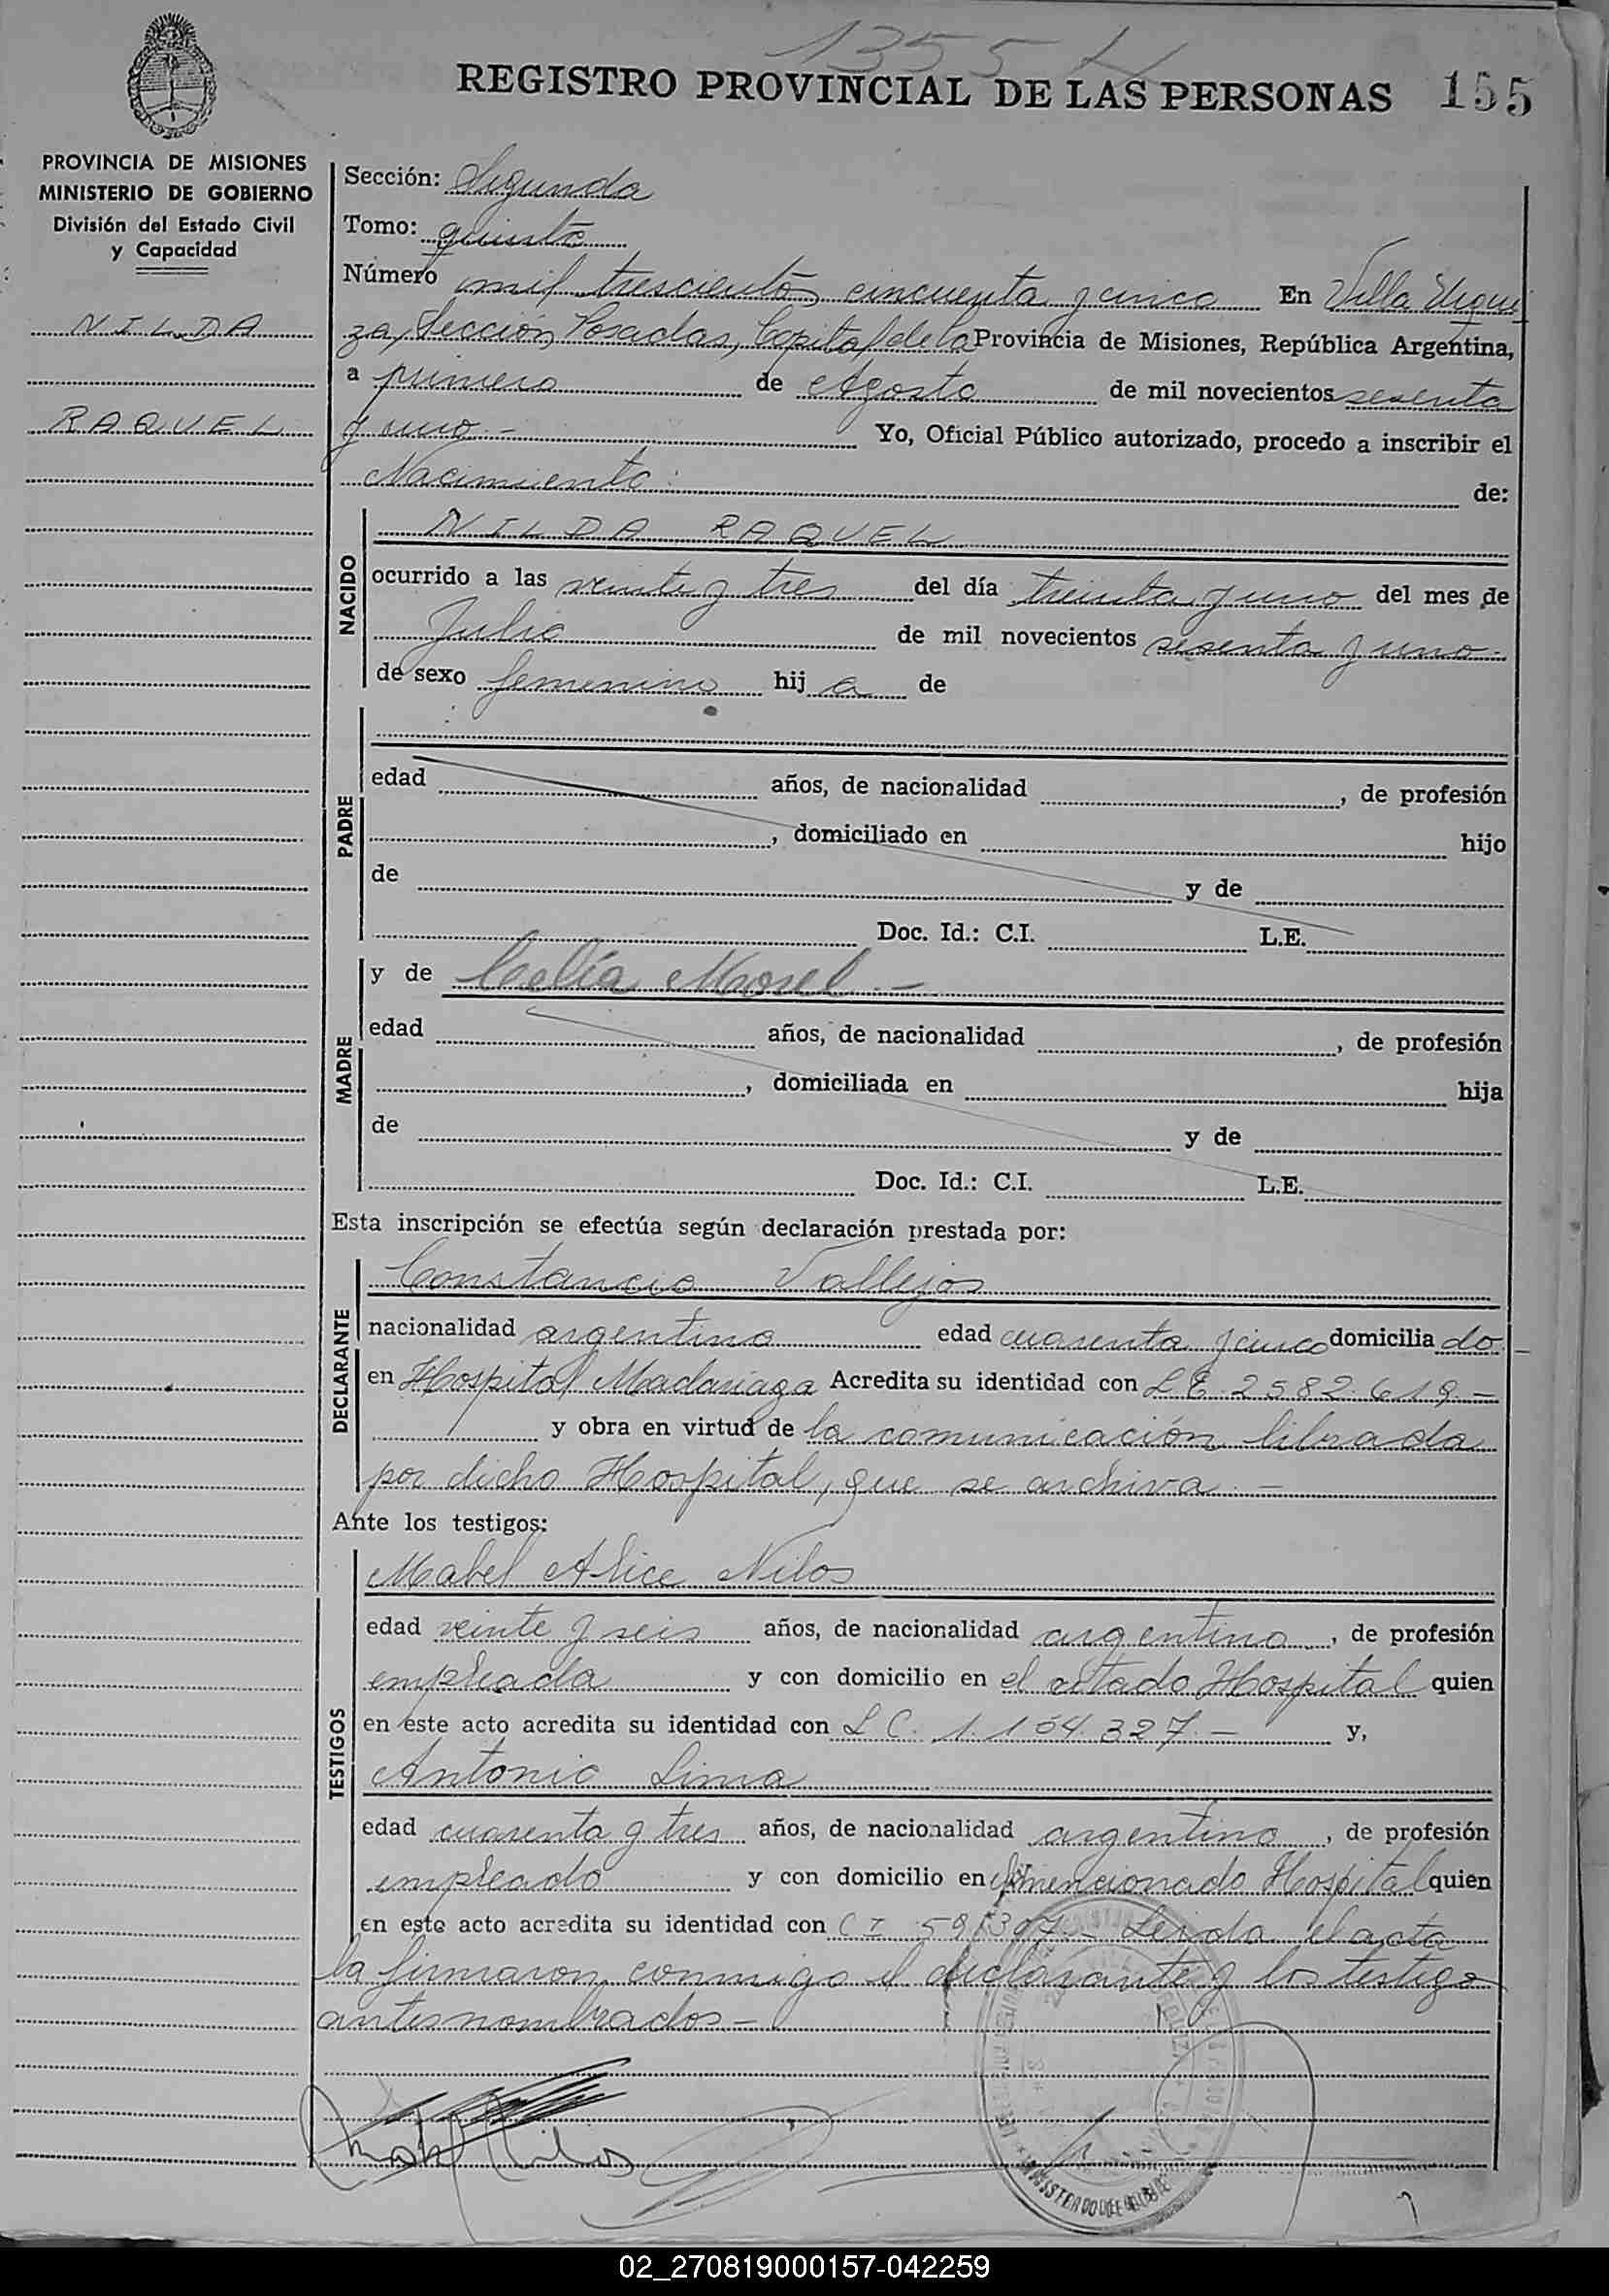 1355
REGISTRO PROVINCIAL DE LAS PERSONAS 155
PROVINCIA DE MISIONES
MINISTERIO DE GOBIERNO
División del Estado Civil
y Capacidad
NILDA
RAQUEL
Sección: Segunda
Tomo: quinto
Número mil trescientos cincuenta y cinco En Villa Urqui
za, Sección Posadas, Capital de la Provincia de Misiones, República Argentina,
a primero de Agosto de mil novecientos sesenta
y uno.- Yo, Oficial Público autorizado, procedo a inscribir el
Nacimiento: de:
NACIDO
NILDA RAQUEL
ocurrido a las veinte y tres del día treinta y uno del mes de
Julio de mil novecientos sesenta y uno.-
de sexo femenino hij a de
PADRE
edad años, de nacionalidad , de profesión
, domiciliado en hijo
de y de
Doc. Id.: C.I. L.E.
MADRE
y de Celía Morel.-
edad años, de nacionalidad , de profesión
, domiciliada en hija
de y de
Doc. Id.: C.I. L.E.
Esta inscripción se efectúa según declaración prestada por:
DECLARANTE
Constancio Vallejos
nacionalidad argentino edad cuarenta y cinco domicilia do
en Hospital Madariaga Acredita su identidad con L E 2582.619.-
y obra en virtud de la comunicación librada
por dicho Hospital, que se archiva.-
Ante los testigos:
TESTIGOS
Mabel Alice Nilos
edad veinte y seis años, de nacionalidad argentina, de profesión
empleada y con domicilio en el citado Hospital quien
en este acto acredita su identidad con L C. 1.154.327.- y,
Antonio Lima
edad cuarenta y tres años, de nacionalidad argentino, de profesión
empleado y con domicilio en mencionado Hospital quien
en este acto acredita su identidad con C I Leida el acta
la firmaron conmigo el declarante y los testigo
antesnombrados.-
02_270819000157-042259